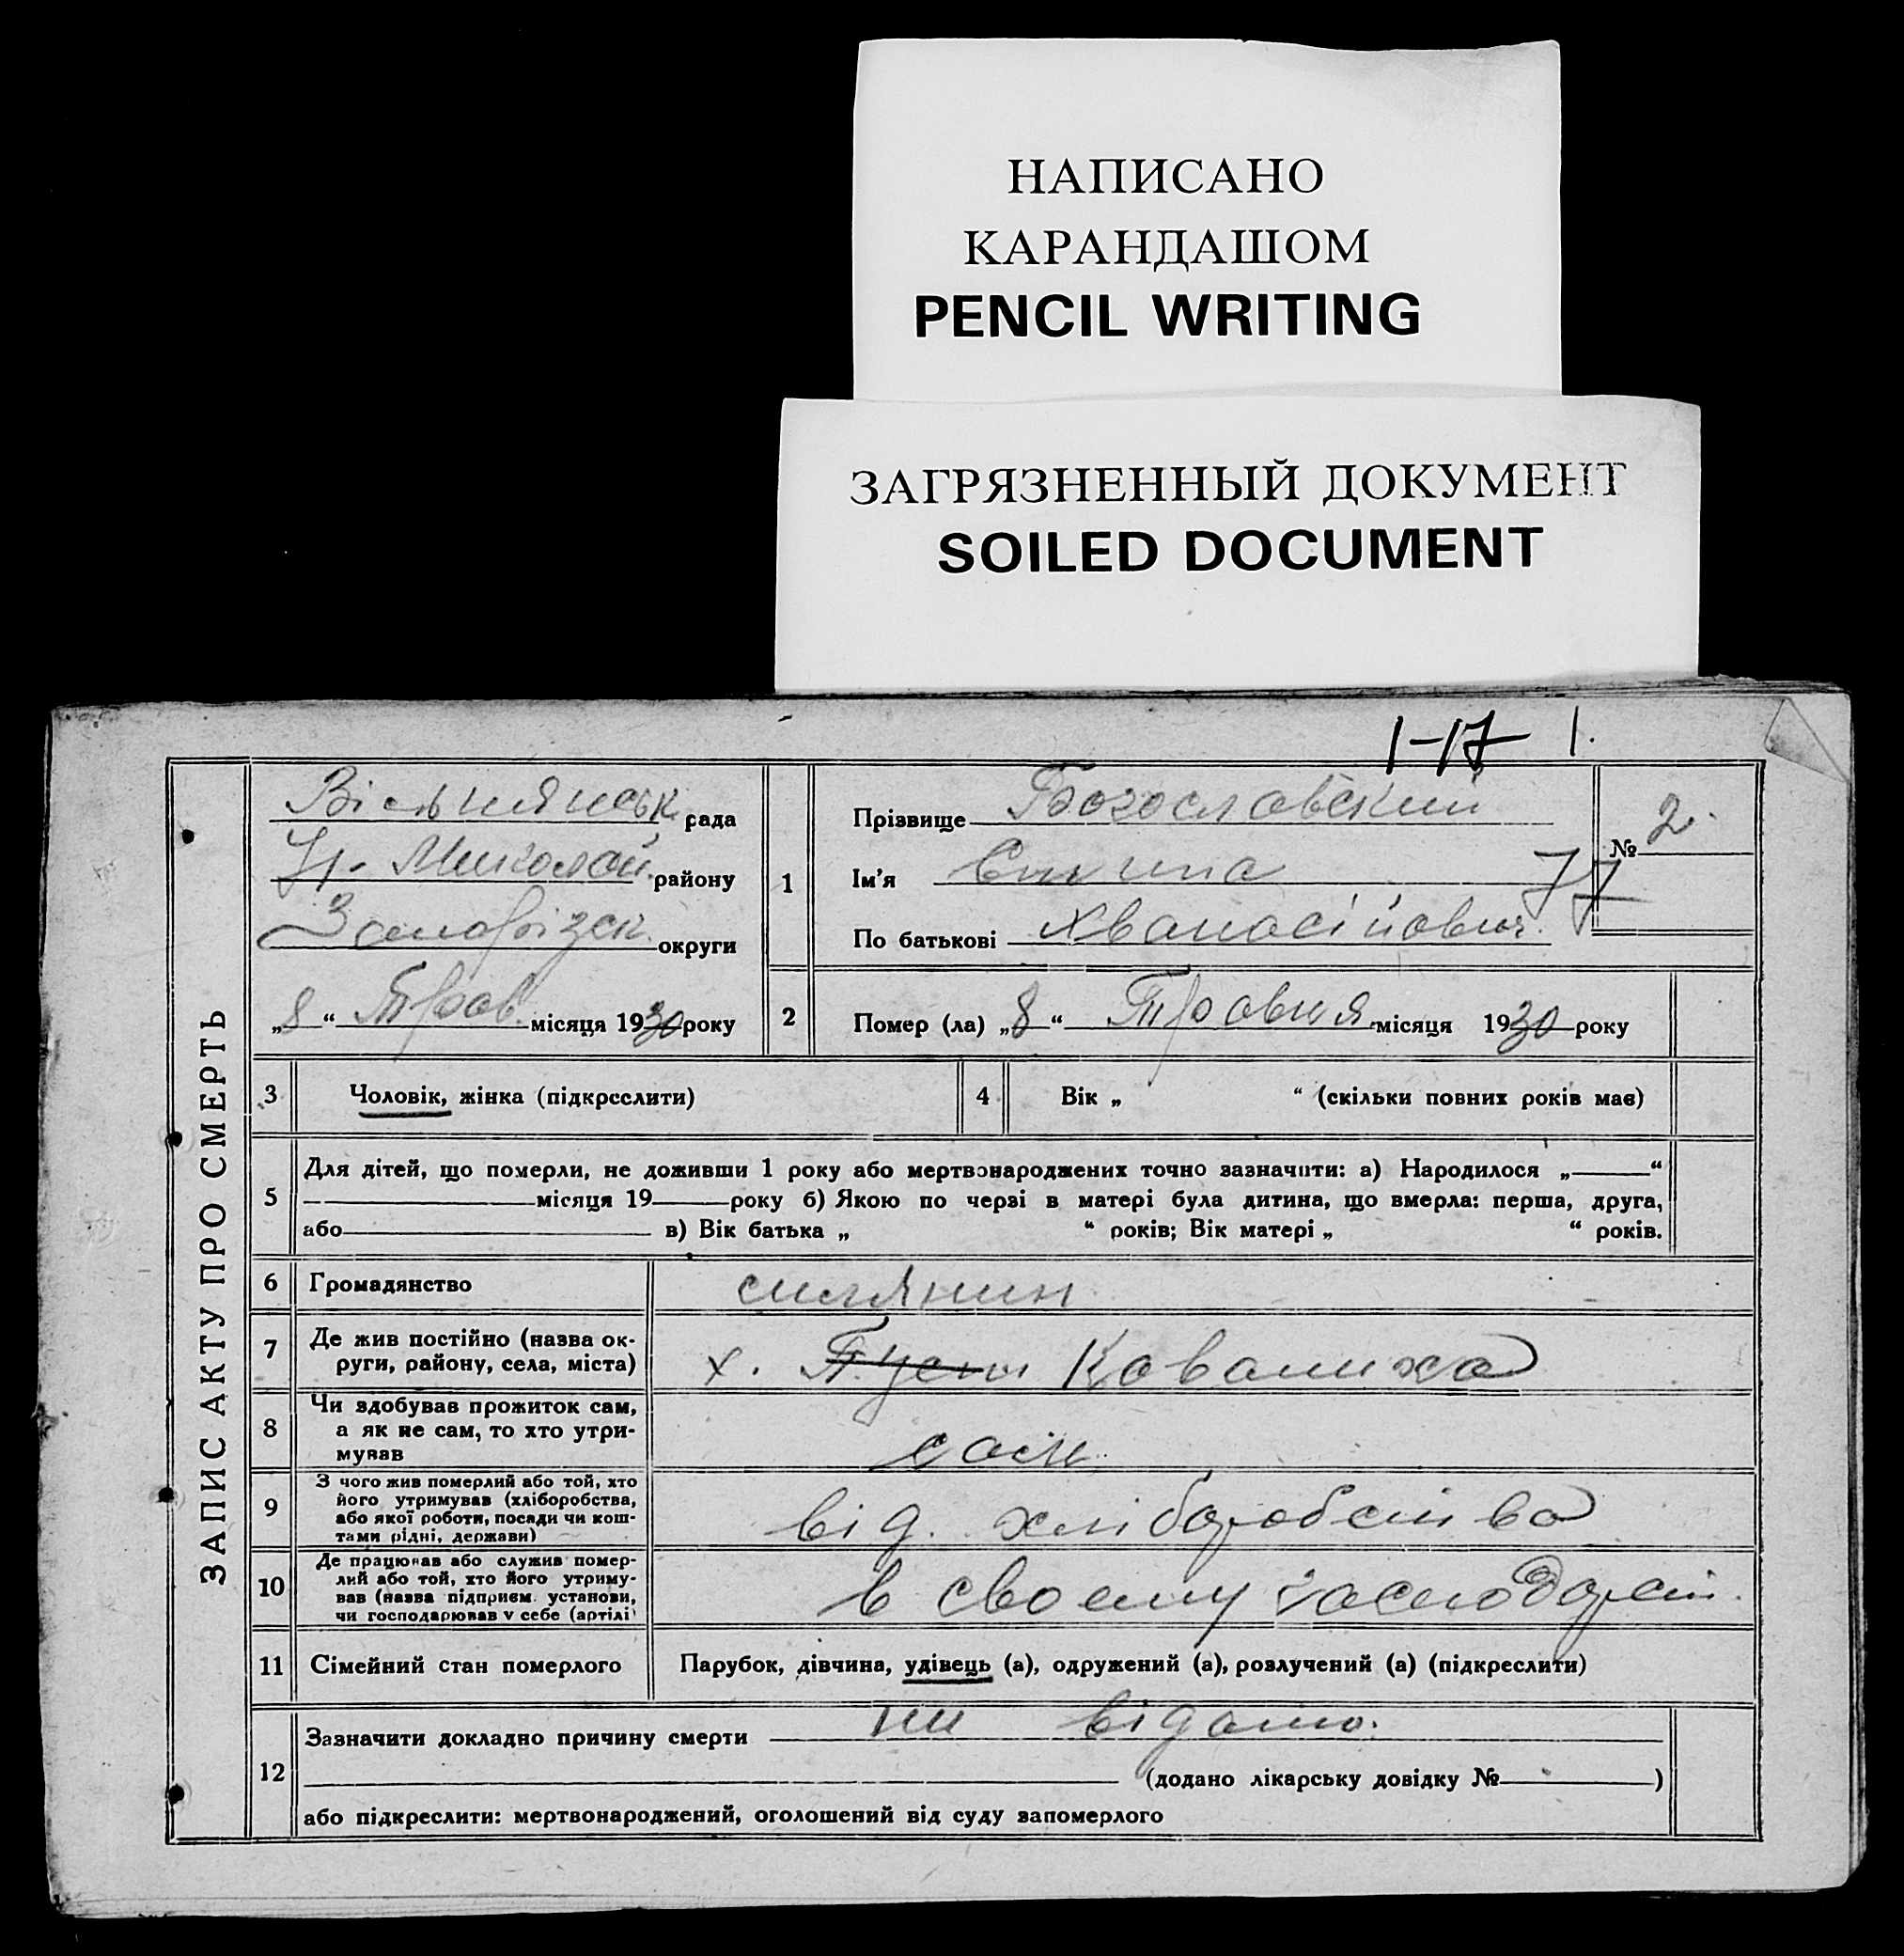 НАПИСАНО
КАРАНДАШОМ
PENCIL WRITING
ЗАГРЯЗНЕННЫЙ ДОКУМЕНТ
SOILED DOCUMENT
1-17 1.
ЗАПИС АКТУ ПРО СМЕРТЬ
Вільнянськ рада
Миколай. району
Запорізск. округи
„8“ Трав. місяця 1930 року
1
Прізвище Богословский
Ім'я
По батькові Хванасійович.
№ 2.
77
2
Помер (ла) „8“ Травня місяця 1930 року
3 Чоловік, жінка (підкреслити)
4 Вік „ “ (скільки повних років має)
5
Для дітей, що померли, не доживши 1 року або мертвонароджених точно зазначити: а) Народилося „ “
місяця 19 року б) Якою по черзі в матері була дитина, що вмерла: перша, друга,
або в) Вік батька „ “ років; Вік матері „ “ років.
6 Громадянство силянин
7 Де жив постійно (назва ок-
руги, району, села, міста)
х. Ковалиха
8 Чи здобував прожиток сам,
а як не сам, то хто утри-
мував
сам
9 З чого жив померлий або той, хто
його утримував (хліборобства,
або якої роботи, посади чи кош-
тами рідні, держави)
від. хліборобства
10 Де працював або служив помер-
лий або той, хто його утриму-
вав (назва підприєм. установи,
чи господарював у себе (артілі)
в своему господарст.
11 Сімейний стан померлого Парубок, дівчина, удівець (а), одружений (а), розлучений (а) (підкреслити)
12
Зазначити докладно причину смерти ни відамо.
(додано лікарську довідку № )
або підкреслити: мертвонароджений, оголошений від суду запомерлого